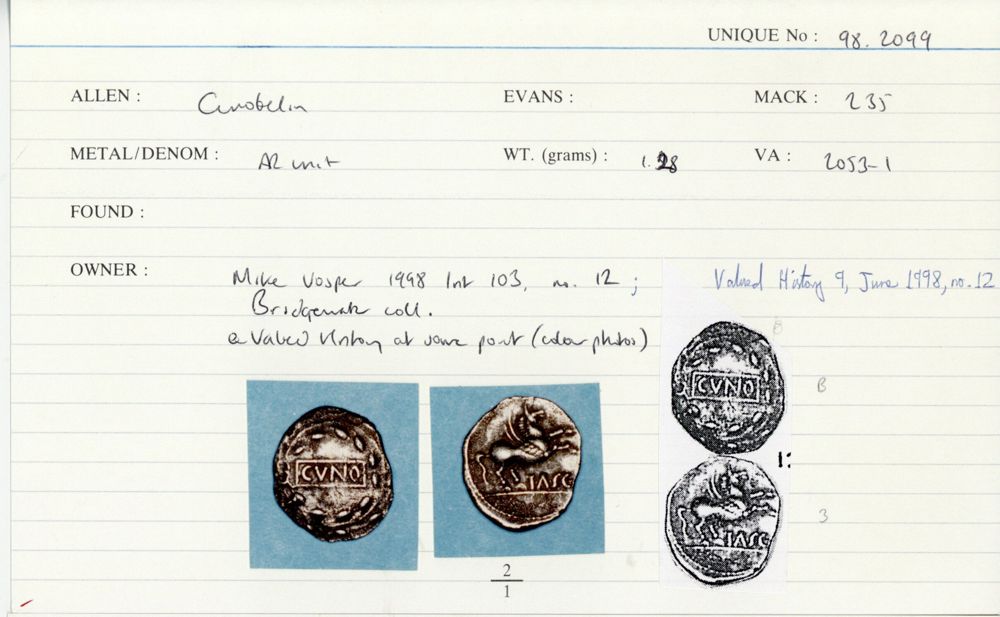 UNIQUE No : 98.2099
ALLEN : Cunobelin EVANS : MACK : 235
METAL/DENOM : AR unit WT. (grams) : 1.28 VA : 2053-1
FOUND :
OWNER : Mike Vosper 1998 103, no. 12 ; Valued History 9, June 1998, no. 12
Bridgewater coll.
Valued History at some point (colour photos)
CVNO
IASC
CVNO
B
B
1:
IASC
3
2
1